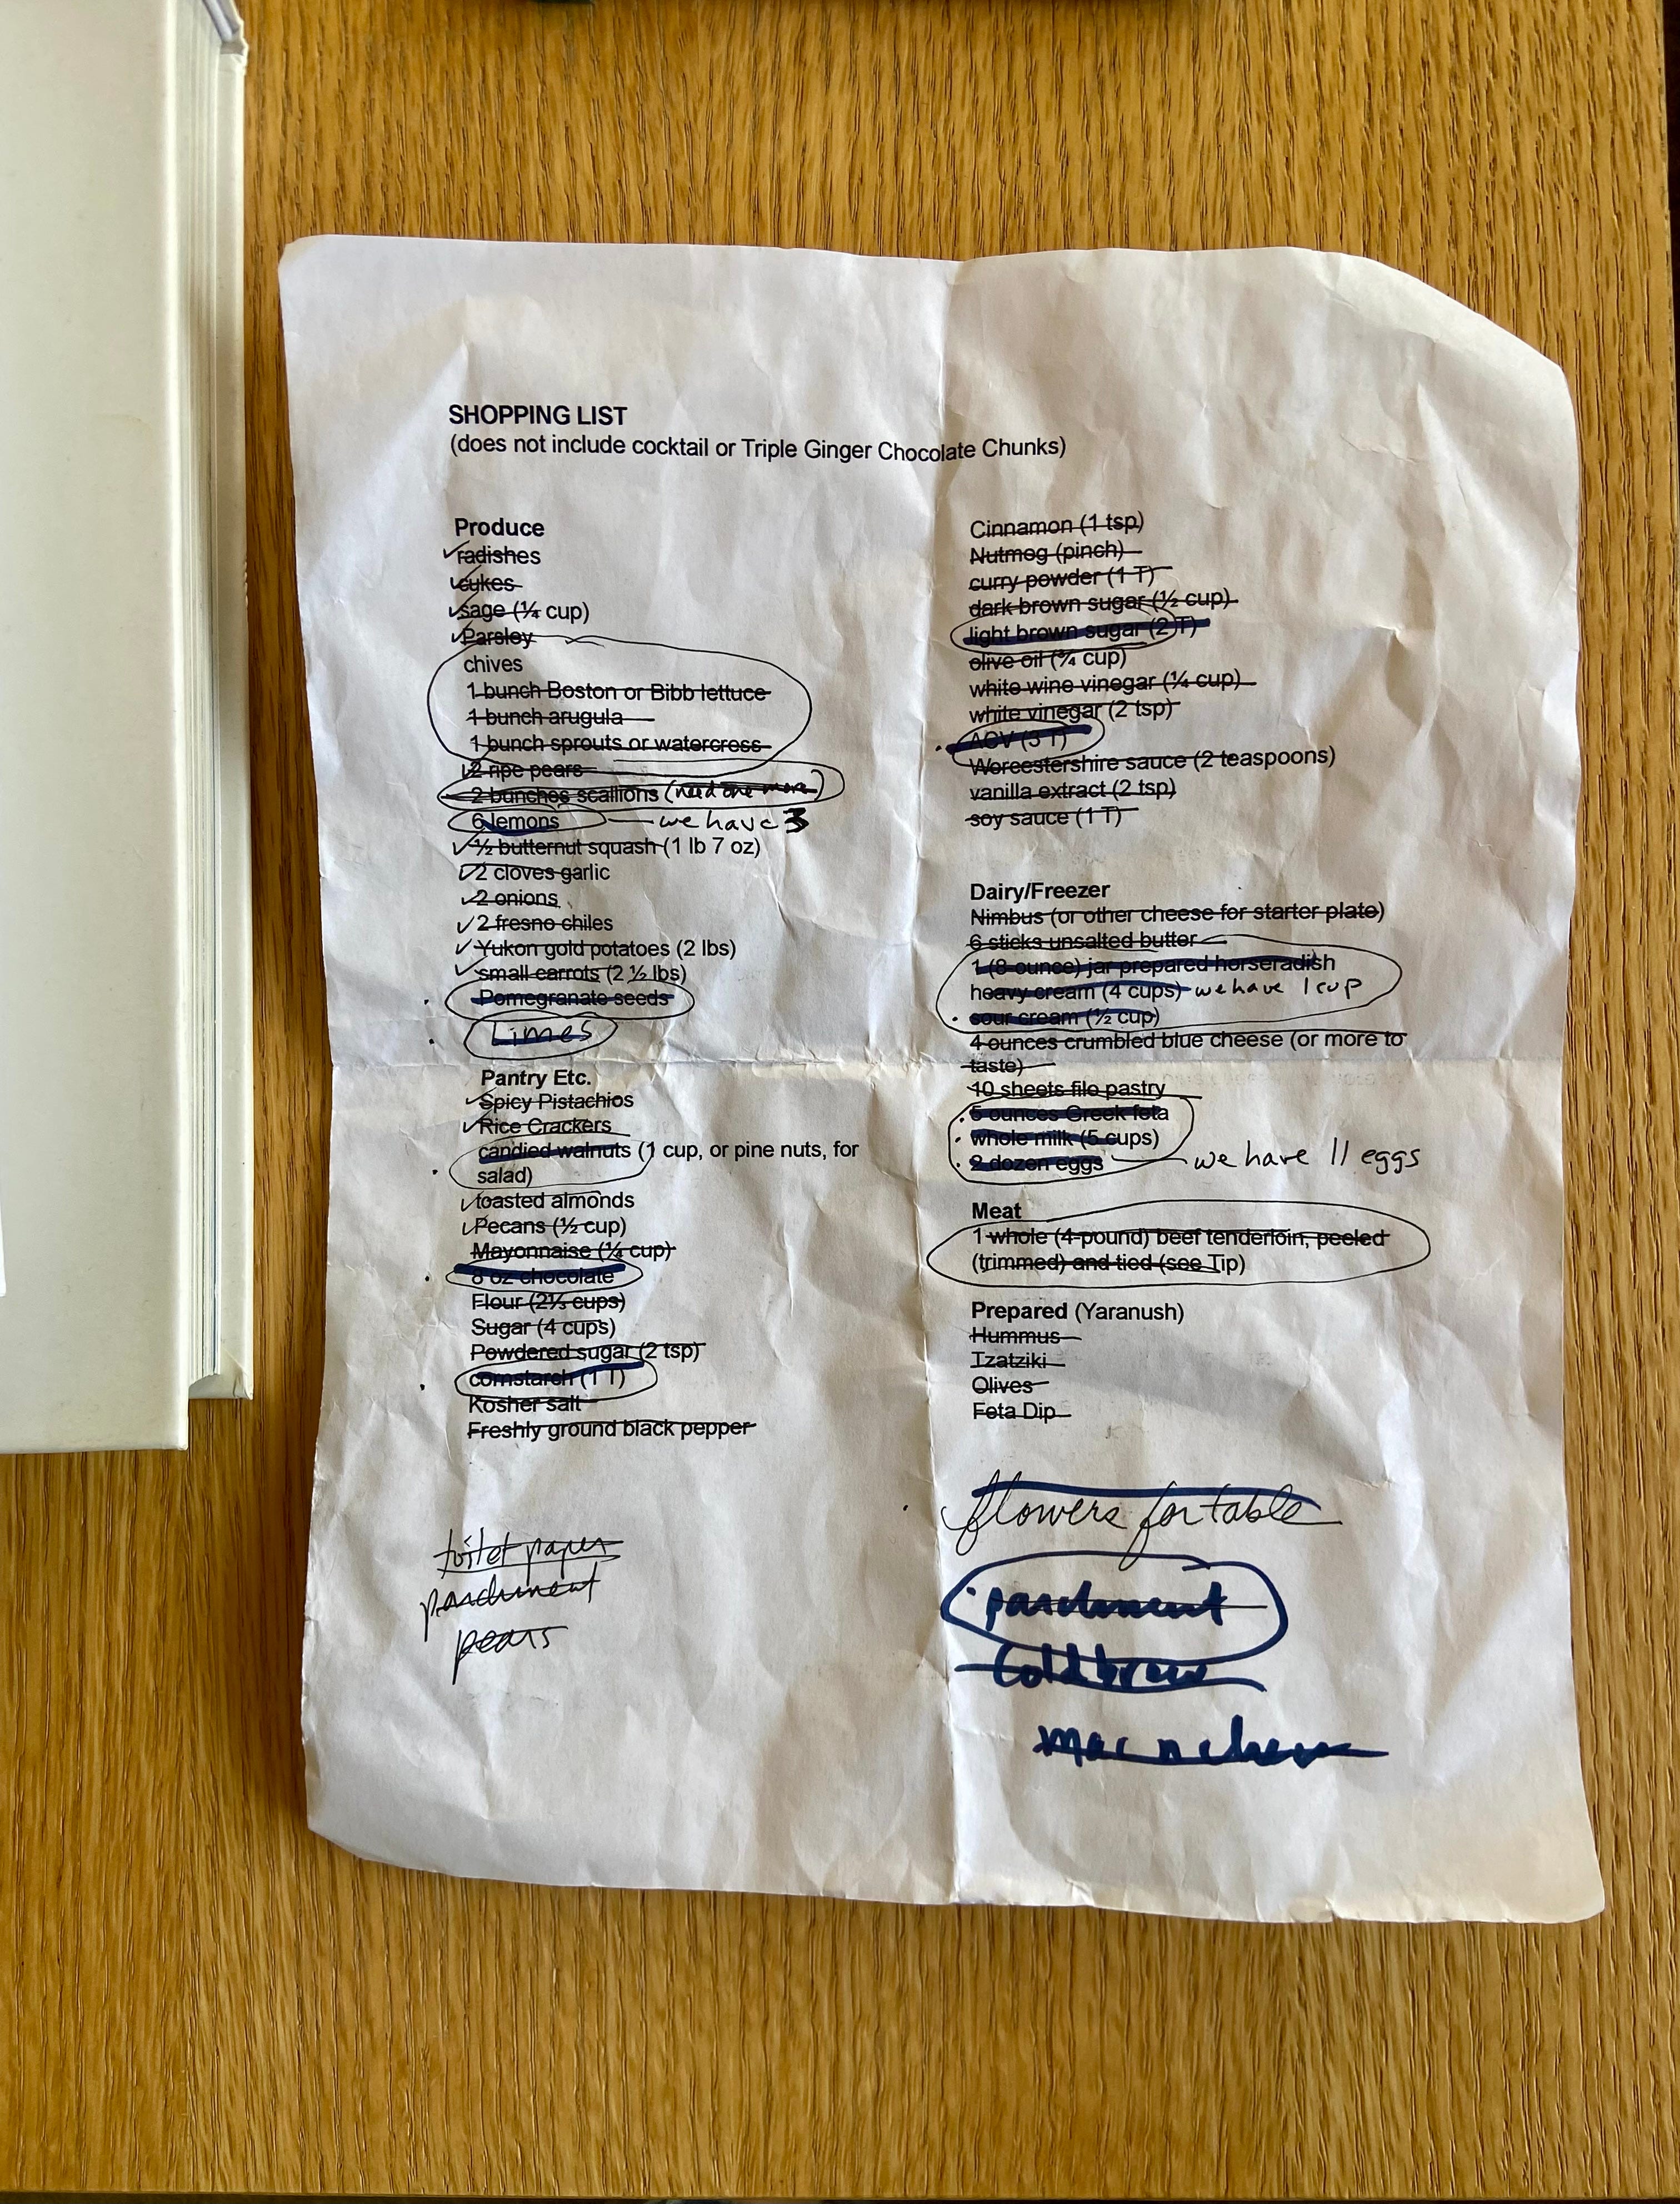 SHOPPING LIST
(does not include cocktail or Triple Ginger Chocolate Chunks)
Produce
radishes
cukes
sage (¼ cup)
Parsley
chives
1 bunch Boston or Bibb lettuce
1 bunch arugula
1 bunch sprouts or watercress
2 ripe pears
2 bunches scallions (need one more)
6 lemons we have 3
½ butternut squash (1 lb 7 oz)
2 cloves garlic
2 onions
2 fresno chiles
Yukon gold potatoes (2 lbs)
small carrots (2 ½ lbs)
Pomegranate seeds
Limes
Pantry Etc.
Spicy Pistachios
Rice Crackers
candied walnuts (1 cup, or pine nuts, for
salad)
toasted almonds
Pecans (½ cup)
Mayonnaise (¼ cup)
8 oz chocolate
Flour (2⅓ cups)
Sugar (4 cups)
Powdered sugar (2 tsp)
cornstarch (1 T)
Kosher salt
Freshly ground black pepper
toilet paper
parchment
pears
Cinnamon (1 tsp)
Nutmeg (pinch)
curry powder (1 T)
dark brown sugar (½ cup)
light brown sugar (2 T)
olive oil (¾ cup)
white wine vinegar (¼ cup)
white vinegar (2 tsp)
ACV (3 T)
Worcestershire sauce (2 teaspoons)
vanilla extract (2 tsp)
soy sauce (1 T)
Dairy/Freezer
Nimbus (or other cheese for starter plate)
6 sticks unsalted butter
1 (8-ounce) jar prepared horseradish
heavy cream (4 cups) we have 1 cup
sour cream (½ cup)
4 ounces crumbled blue cheese (or more to
taste)
10 sheets filo pastry
5 ounces Greek feta
whole milk (5 cups)
2 dozen eggs we have 11 eggs
Meat
1 whole (4-pound) beef tenderloin, peeled
(trimmed) and tied (see Tip)
Prepared (Yaranush)
Hummus
Tzatziki
Olives
Feta Dip
flowers for table
parchment
Cold brew
mac n cheese